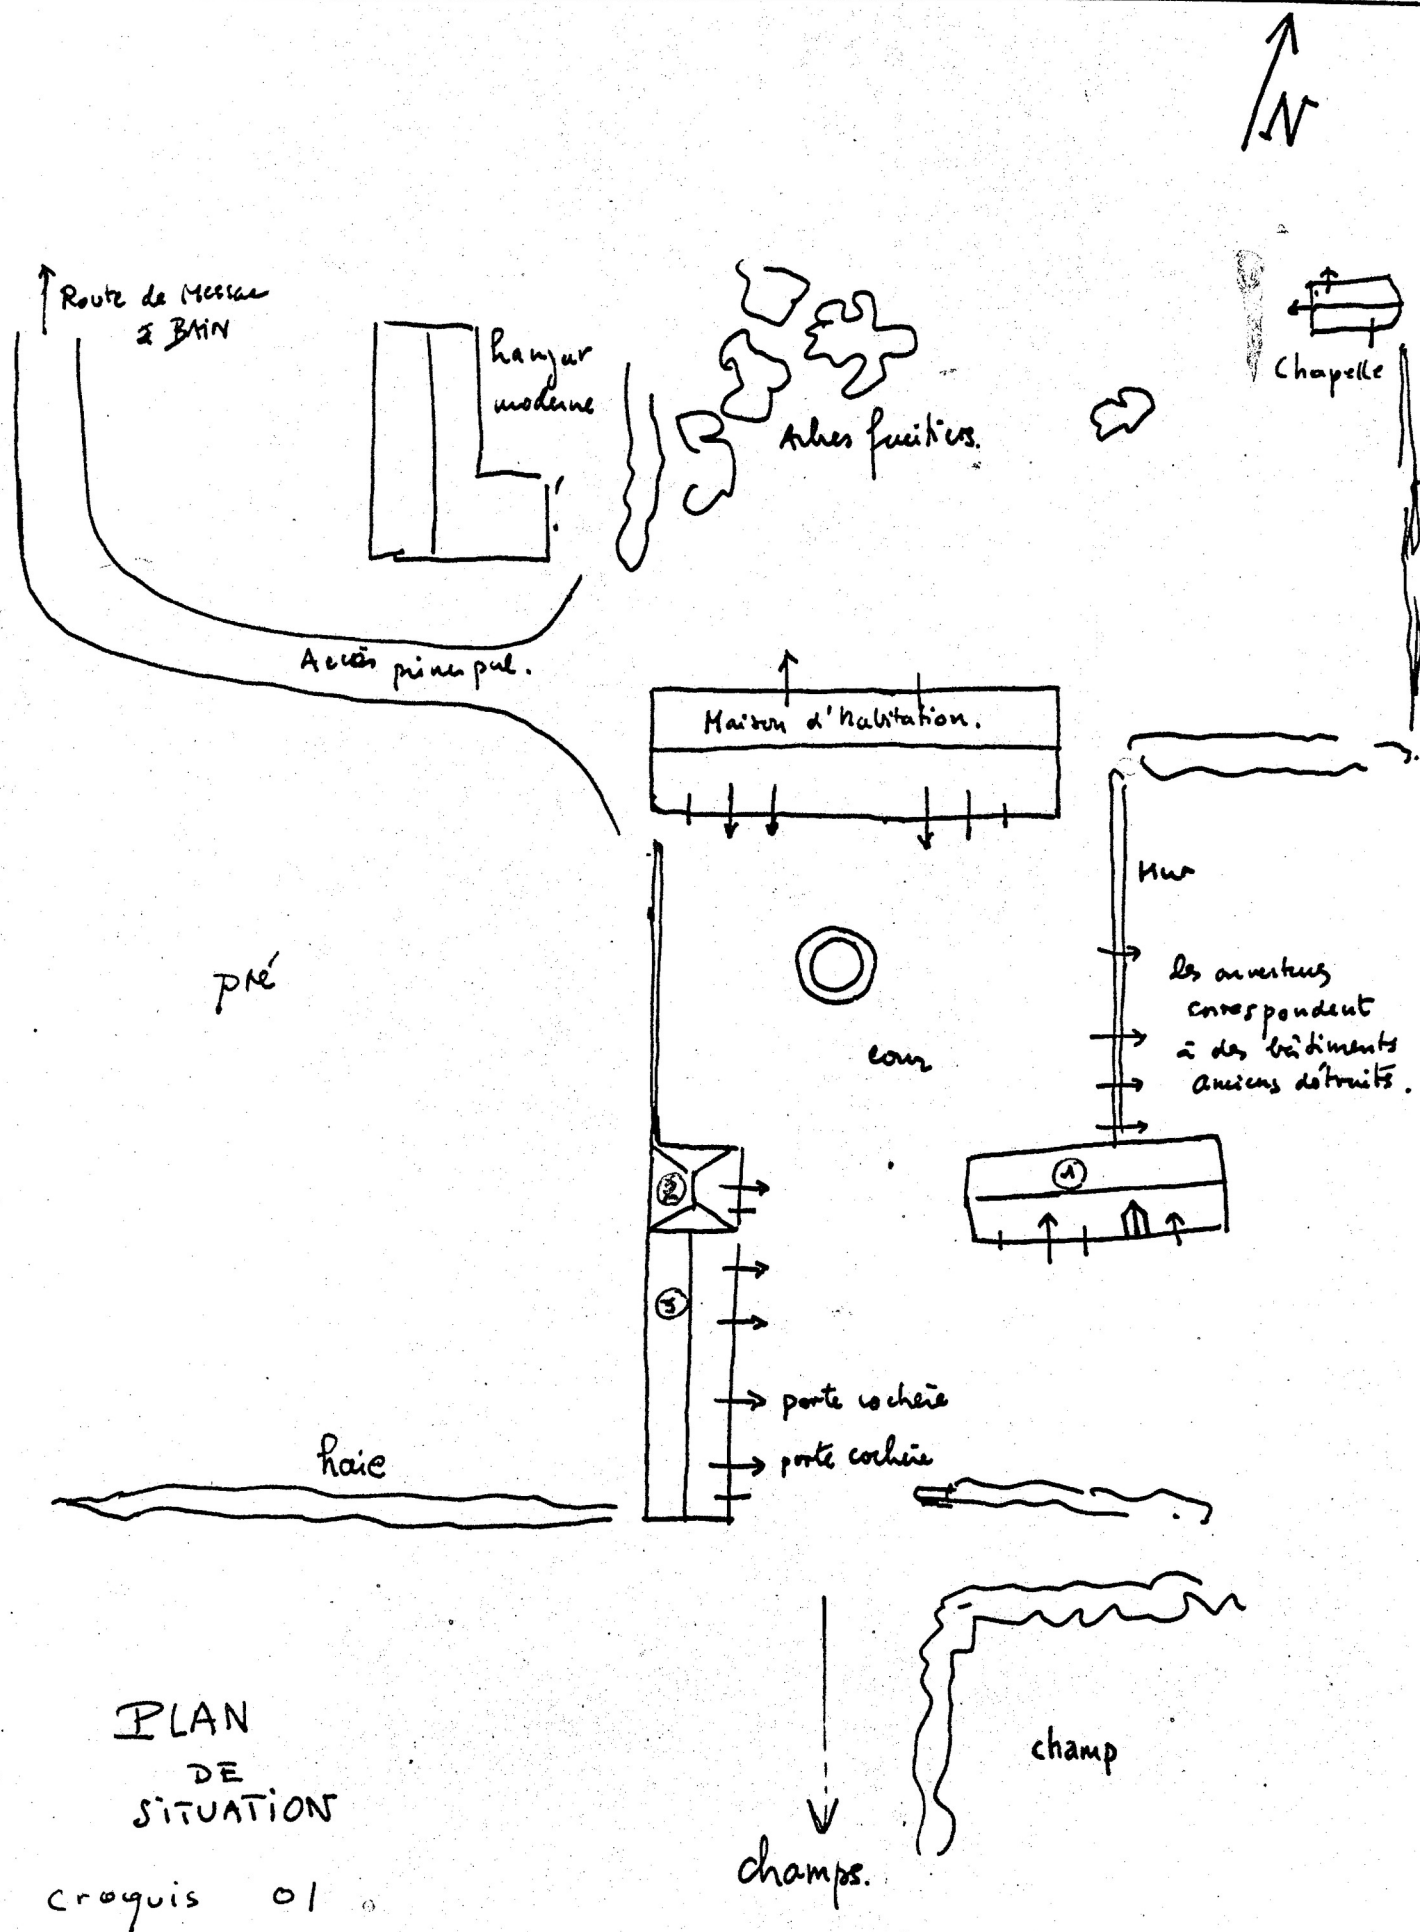 N
Route de Messac
à BAIN
hangar
moderne
Arbres fruitiers.
Chapelle
Accès principal.
Maison d'habitation.
Mur
pré
les ouvertures
correspondent
à des bâtiments
anciens détruits.
cour
1
2
3
porte cochère
porte cochère
haie
PLAN
DE
SITUATION
champ
champs.
croquis 01